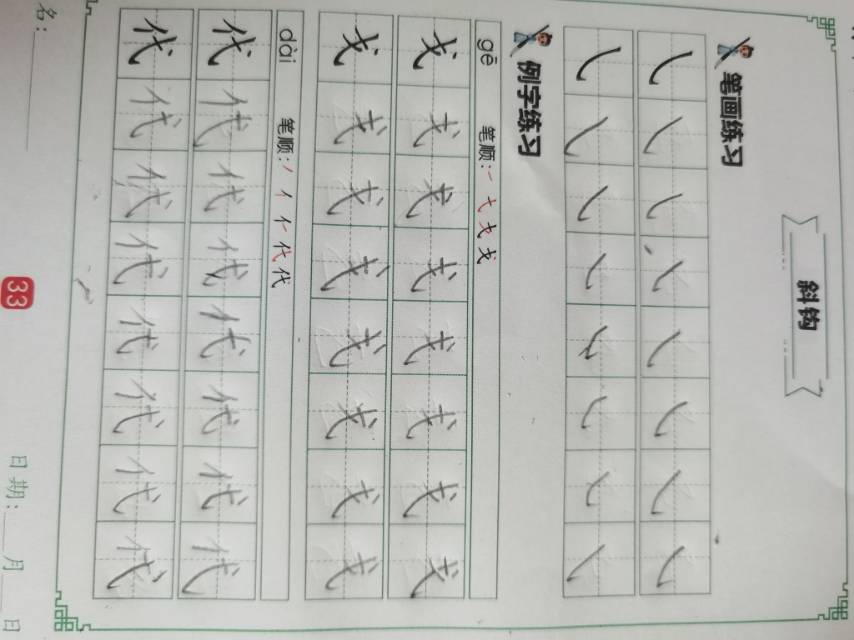 斜钩
笔画练习
㇂ ㇂ ㇂ ㇂ ㇂ ㇂ ㇂ ㇂
㇂ ㇂ ㇂ ㇂ ㇂ ㇂ ㇂ ㇂
例字练习
gē 笔顺: 一 弋 戈 戈
戈 戈 戈 戈 戈 戈 戈 戈
戈 戈 戈 戈 戈 戈 戈 戈
dài 笔顺: 丿 亻 仁 代 代
代 代 代 代 代 代 代 代
代 代 代 代 代 代 代 代
名:____ 33 日期:__月__日